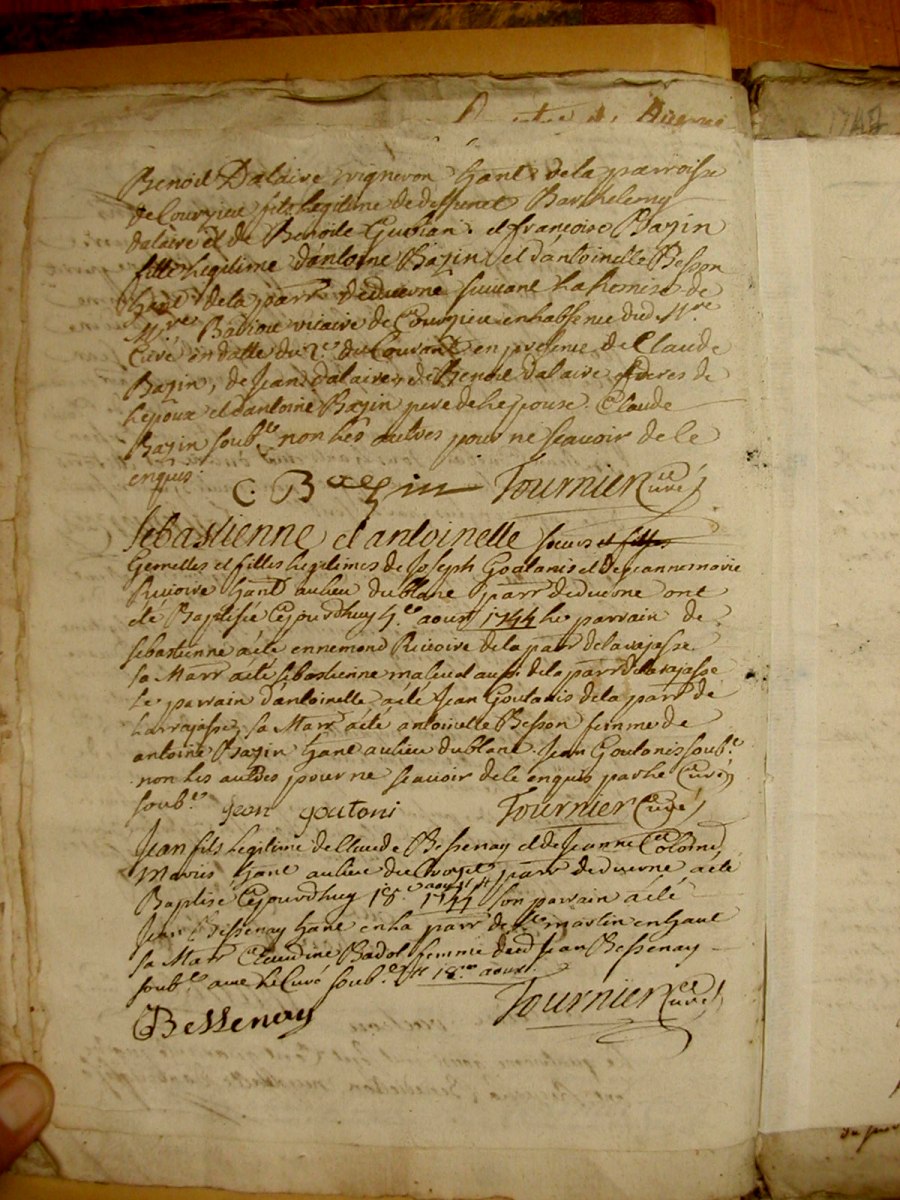 Benoit Dalaire vigneron hant de la parroisse
de Courzieu fils legitime de deffunct Barthelemy
dalaire et de Benoite Gubian et francoise Bazin
fille legitime d'antoine Bazin et d'antoinette Besson
hant de la parr deduerne suivant la remise de
Mre Badiou vicaire de Courzieu en l'absence dud Mre
Curé en datte du 2e du Courant en presence de Claude
Bazin, de Jean dalaire, de Benoit dalaire freres de
lepoux et d'antoine Bazin pere de lepouse. Claude
Bazin soubné non les aultres pour ne scavoir de ce
enquis
C. Bazin Fournier Curé
Sebastienne et antoinette soeurs et filles
Gemelles et filles legitimes de Joseph Goutanis et de jeanne marie
Rivoire hant au lieu du blanc parr deduerne ont
été Baptisée Cejourdhuy 4e aoust 1744 le parrain de
sebastienne a été ennemond Rivoire de la parr de larajasse
sa Marr a été sebastienne aussi de la parr de larajasse
le parrain d'antoinette a été Jean Goutanis de la parr de
Larrajasse, sa Marr a été antoinette Besson femme de
antoine Bazin hant au lieu du blanc. Jean Goutanis soubé
non les aultres pour ne scavoir de ce enquis par le Curé
soubné Jean goutoni Fournier Curé
Jean fils legitime de Claude Bessenay et de Jeanne
Mariés hant au lieu du parr deduerne a été
Baptisé Cejourdhuy 18e aoust 1744 son parrain a été
Jean Bessenay hant en la parr de St martin en haut
sa Marr Claudine Badol femme dud Jean Bessenay
soubné avec le Curé soubné 18me aoust
Bessenay Fournier Curé